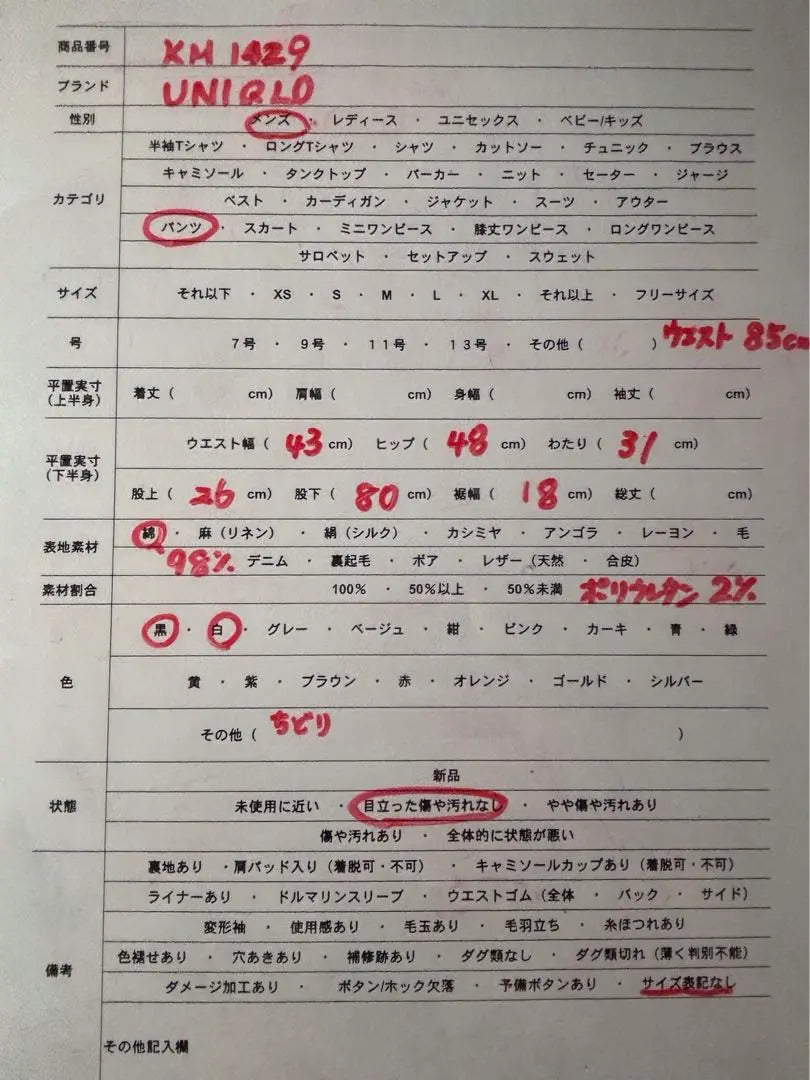 商品番号 KM 1429
ブランド UNIQLO
性別 メンズ ・ レディース ・ ユニセックス ・ ベビー/キッズ
半袖Tシャツ ・ ロングTシャツ ・ シャツ ・ カットソー ・ チュニック ・ ブラウス
キャミソール ・ タンクトップ ・ パーカー ・ ニット ・ セーター ・ ジャージ
カテゴリ ベスト ・ カーディガン ・ ジャケット ・ スーツ ・ アウター
パンツ ・ スカート ・ ミニワンピース ・ 膝丈ワンピース ・ ロングワンピース
サロペット ・ セットアップ ・ スウェット
サイズ それ以下 ・ XS ・ S ・ M ・ L ・ XL ・ それ以上 ・ フリーサイズ
号 7号 ・ 9号 ・ 11号 ・ 13号 ・ その他 ( ) ウエスト 85cm
平置実寸
(上半身) 着丈 ( cm) 肩幅 ( cm) 身幅 ( cm) 袖丈 ( cm)
平置実寸
(下半身)
ウエスト幅 ( 43 cm) ヒップ ( 48 cm) わたり ( 31 cm)
股上 ( 26 cm) 股下 ( 80 cm) 裾幅 ( 18 cm) 総丈 ( cm)
表地素材 綿 ・ 麻 (リネン) ・ 絹 (シルク) ・ カシミヤ ・ アンゴラ ・ レーヨン ・ 毛
98% デニム ・ 裏起毛 ・ ボア ・ レザー (天然 ・ 合皮)
素材割合 100% ・ 50%以上 ・ 50%未満 ポリウレタン 2%
黒 ・ 白 ・ グレー ・ ベージュ ・ 紺 ・ ピンク ・ カーキ ・ 青 ・ 緑
色 黄 ・ 紫 ・ ブラウン ・ 赤 ・ オレンジ ・ ゴールド ・ シルバー
その他 ( ちどり )
新品
状態 未使用に近い ・ 目立った傷や汚れなし ・ やや傷や汚れあり
傷や汚れあり ・ 全体的に状態が悪い
裏地あり ・肩パッド入り (着脱可・不可) ・ キャミソールカップあり (着脱可・不可)
ライナーあり ・ ドルマリンスリーブ ・ ウエストゴム (全体 ・ バック ・ サイド)
変形袖 ・ 使用感あり ・ 毛玉あり ・ 毛羽立ち ・ 糸ほつれあり
備考 色褪せあり ・ 穴あきあり ・ 補修跡あり ・ ダグ類なし ・ ダグ類切れ (薄く判別不能)
ダメージ加工あり ・ ボタン/ホック欠落 ・ 予備ボタンあり ・ サイズ表記なし
その他記入欄